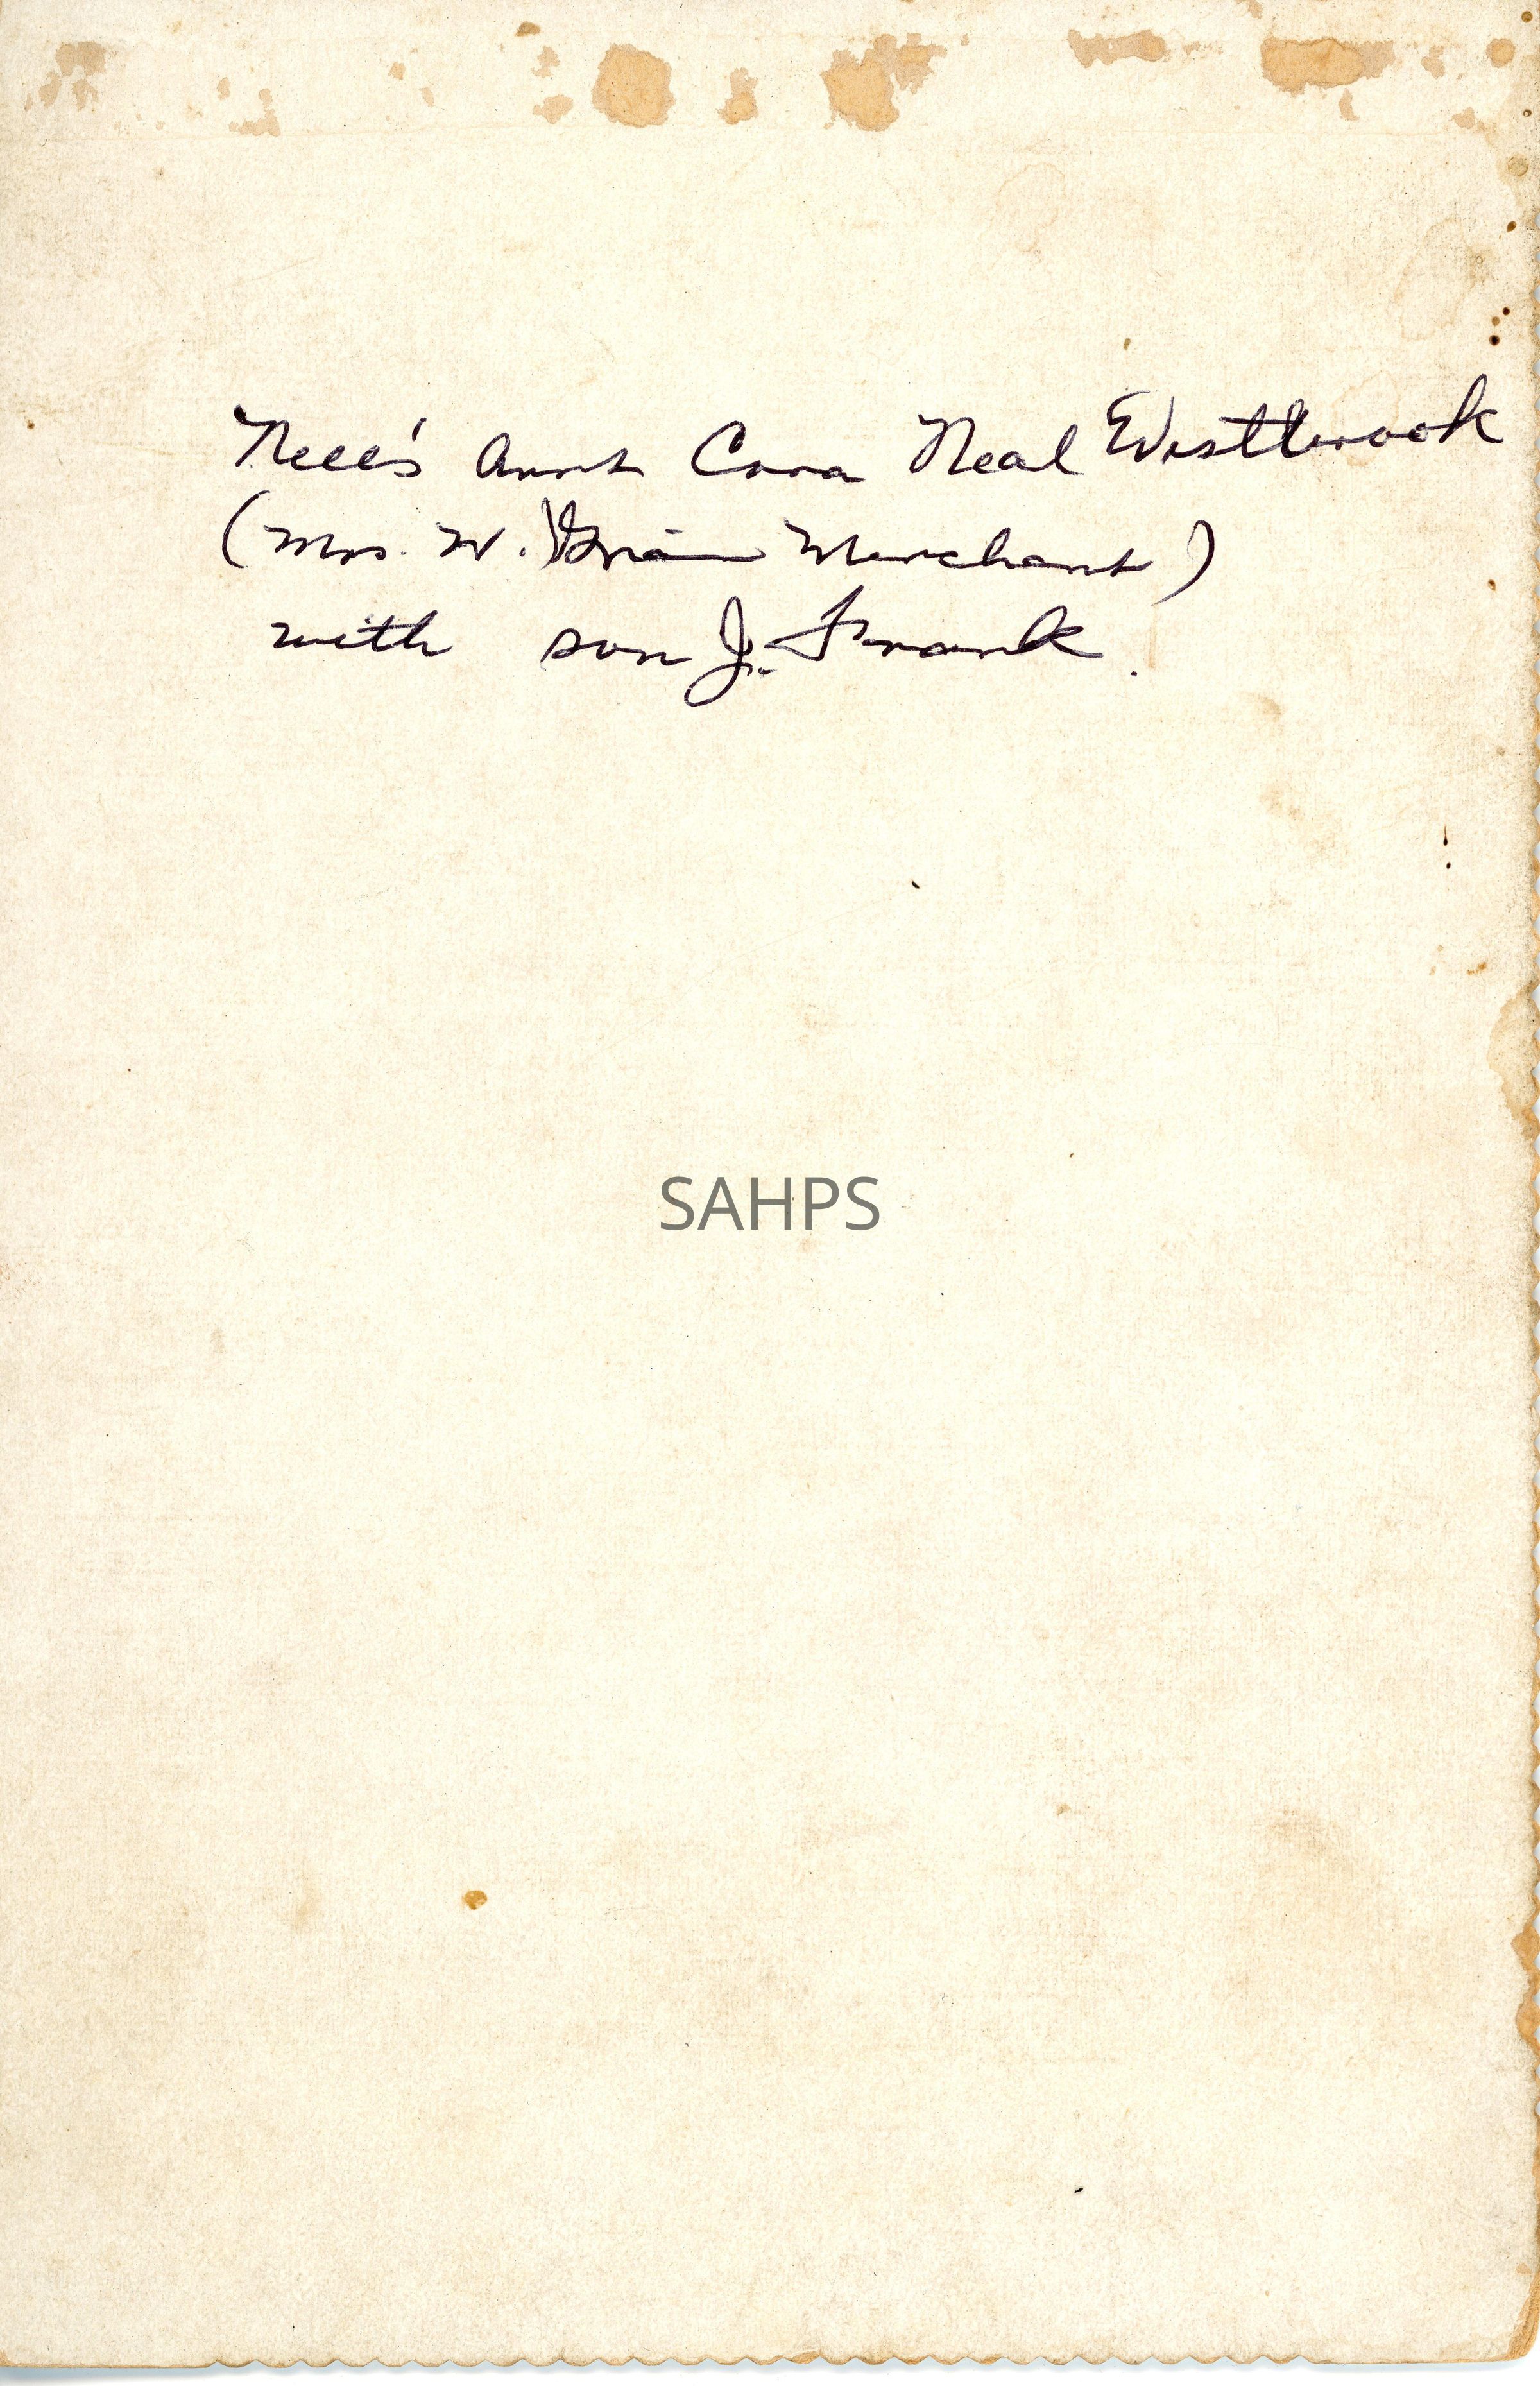 Nell's Aunt Cora Neal Westbrook
(Mrs. W. Merchant)
with son J. Frank.
SAHPS